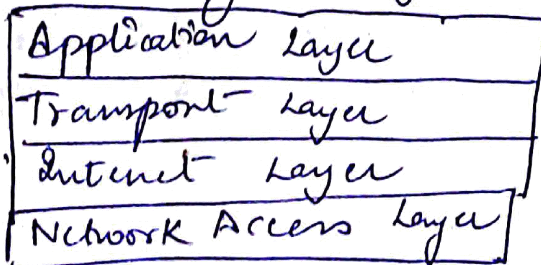 Application Layer
Transport Layer
Internet Layer
Network Access Layer